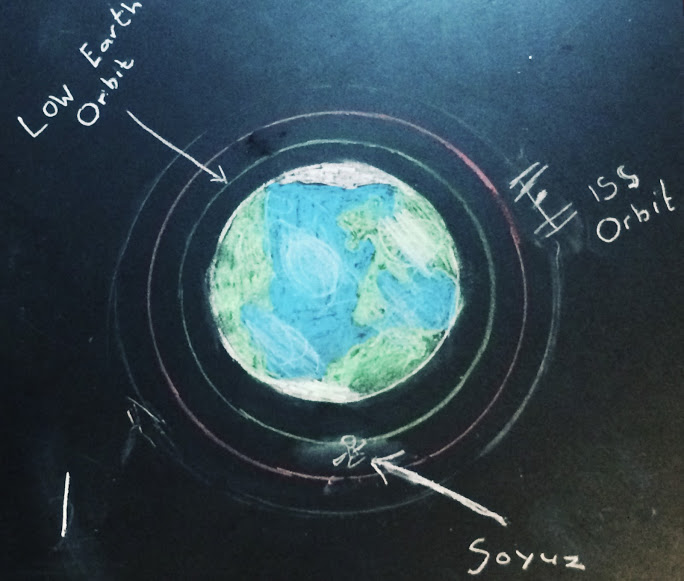 Low Earth
Orbit
ISS
Orbit
Soyuz